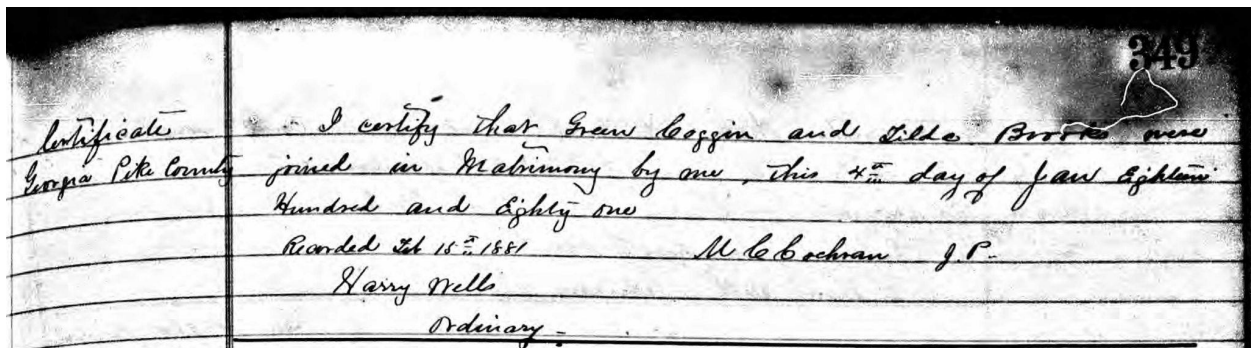 349
Certificate
Georgia Pike County
I certify that Green Coggin and Tilda Brooks were
joined in Matrimony by me, this 4th day of Jan Eighteen
Hundred and Eighty one
Recorded Feb 15th 1881 M C Cochran J.P.
Harry Wells
Ordinary